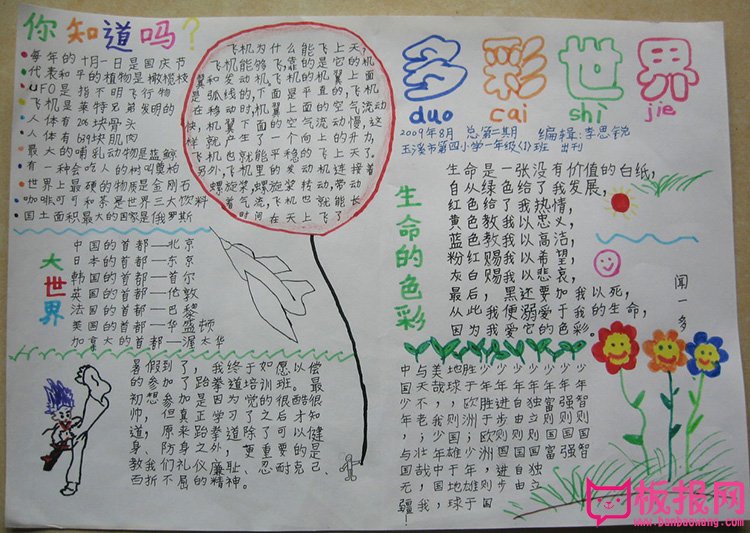 你知道吗？
每年的十月一日是国庆节
代表和平的植物是橄榄枝
UFO是指不明飞行物
飞机是莱特兄弟发明的
人体有206块骨头
人体有639块肌肉
最大的哺乳动物是蓝鲸
有一种会吃人的树叫奠柏
世界上最硬的物质是金刚石
咖啡可可和茶是世界三大饮料
国土面积最大的国家是俄罗斯
飞机为什么能飞上天？
飞机能够飞,靠的是它的机
翼和发动机,飞机的机翼上面
是弧线的,下面是平直的,飞机
在移动时,机翼上面的空气流动
快,机翼下面的空气流动慢,这
样就产生了一个向上的升力,
飞机也就能平稳的飞上天了。
另外,飞机里的发动机连接着
螺旋桨,螺旋桨转动,带动
着气流,飞机也就能长
时间在天上飞了
多彩世界
duo cai shì jie
2009年8月 总第二期 编辑:李思锐
玉溪市第四小学一年级(1)班 出刊
大世界
中国的首都—北京
日本的首都—东京
韩国的首都—首尔
英国的首都—伦敦
法国的首都—巴黎
美国的首都—华盛顿
加拿大的首都—渥太华
生命的色彩
生命是一张没有价值的白纸,
自从绿色给了我发展,
红色给了我热情,
黄色教我以忠义,
蓝色教我以高洁,
粉红赐我以希望,
灰白赐我以悲哀,
最后,黑还要加我以死,
从此我便溺爱于我的生命,
因为我爱它的色彩。
闻一多
暑假到了,我终于如愿以偿
的参加了跆拳道培训班。最
初想参加是因为觉的很酷很
帅,但真正学习了之后才知
道,原来跆拳道除了可以健
身、防身之外,更重要的是
教我们礼仪廉耻、忍耐克己、
百折不屈的精神。
少年智则国智
少年强则国强
少年富则国富
少年独立则国独立
少年自由则国自由
少年进步则国进步
少年胜于欧洲,则国
胜于欧洲;少年雄于
地球,则国雄于地球
美哉,我少年中国,
与天不老;壮哉我
中国少年,与国无疆!
板报网
www.banbaowang.com